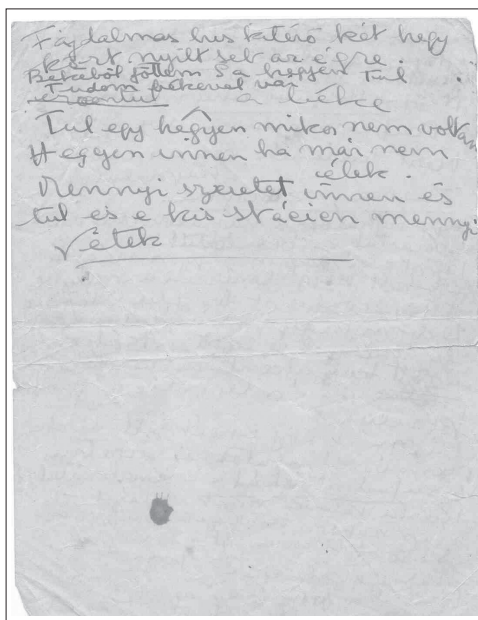 Fájdalmas hus kitérő két hegy
közt nyilt seb az égre.
Békéből jöttem s a hegyen Tul
Tudom békével vár
a béke
Tul egy hegyen mikor nem voltam
Hegyen innen ha már nem
élek.
Mennyi szeretet innen és
tul és e kis stáción mennyi
Vétek